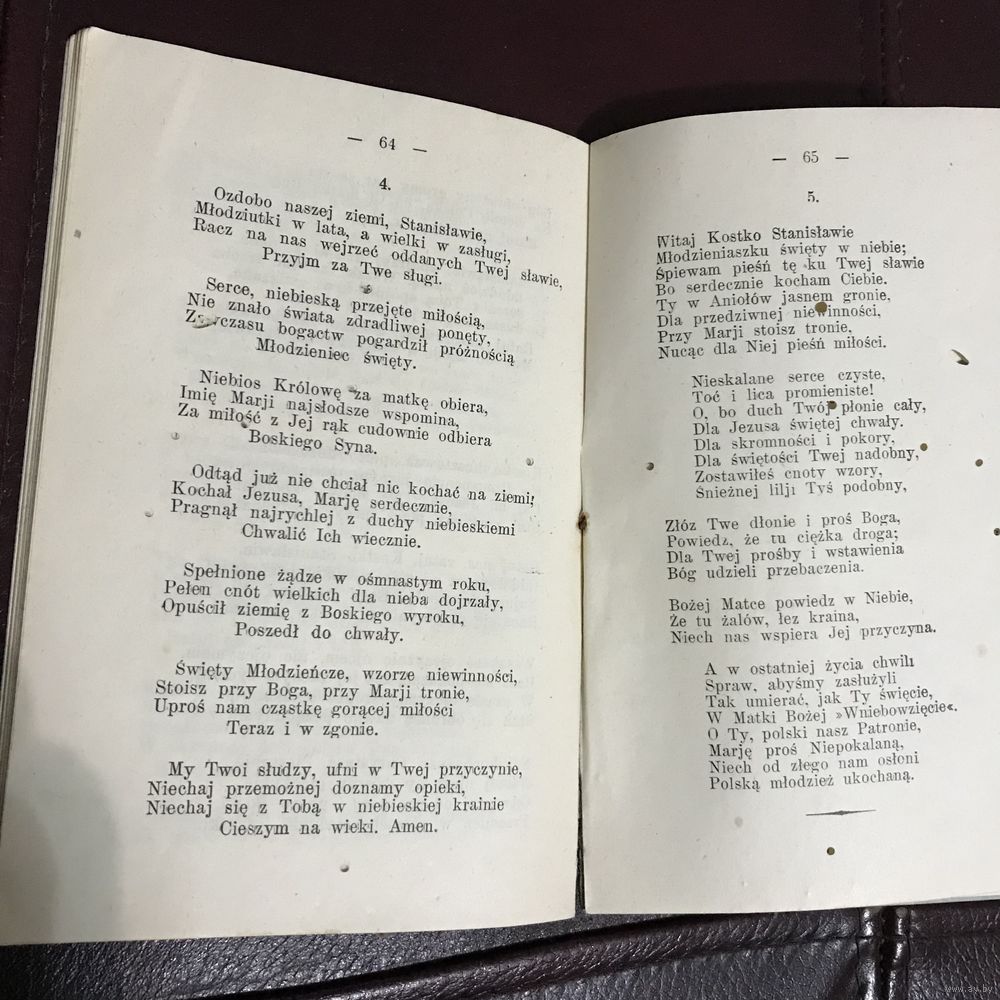 — 64 —
4.
Ozdobo naszej ziemi, Stanisławie,
Młodziutki w lata, a wielki w zasługi,
Racz na nas wejrzeć oddanych Twej sławie,
Przyjm za Twe sługi.
Serce, niebieską przejęte miłością,
Nie znało świata zdradliwej ponęty,
bogactw pogardził próżnością
Młodzieniec święty.
Niebios Królowę za matkę obiera,
Imię Marji najsłodsze wspomina,
Za miłość z Jej rąk cudownie odbiera
Boskiego Syna.
Odtąd już nie chciał nic kochać na ziemi;
Kochał Jezusa, Marję serdecznie,
Pragnął najrychlej z duchy niebieskiemi
Chwalić Ich wiecznie.
Spełnione żądze w ośmnastym roku,
Pełen cnót wielkich dla nieba dojrzały,
Opuścił ziemię z Boskiego wyroku,
Poszedł do chwały.
Święty Młodzieńcze, wzorze niewinności,
Stoisz przy Boga, przy Marji tronie,
Uproś nam cząstkę gorącej miłości
Teraz i w zgonie.
My Twoi słudzy, ufni w Twej przyczynie,
Niechaj przemożnej doznamy opieki,
Niechaj się z Tobą w niebieskiej krainie
Cieszym na wieki. Amen.
— 65 —
5.
Witaj Kostko Stanisławie
Młodzieniaszku święty w niebie;
Śpiewam pieśń tę ku Twej sławie
Bo serdecznie kocham Ciebie.
Ty w Aniołów jasnem gronie,
Dla przedziwnej niewinności,
Przy Marji stoisz tronie,
Nucąc dla Niej pieśń miłości.
Nieskalane serce czyste,
Toć i lica promieniste!
O, bo duch Twój płonie cały,
Dla Jezusa świętej chwały.
Dla skromności i pokory,
Dla świętości Twej nadobny,
Zostawiłeś cnoty wzory,
Śnieżnej lilji Tyś podobny,
Złóz Twe dłonie i proś Boga,
Powiedz, że tu ciężka droga;
Dla Twej prośby i wstawienia
Bóg udzieli przebaczenia.
Bożej Matce powiedz w Niebie,
Że tu żalów, łez kraina,
Niech nas wspiera Jej przyczyna.
A w ostatniej życia chwili
Spraw, abyśmy zasłużyli
Tak umierać, jak Ty święcie,
W Matki Bożej »Wniebowzięcie«.
O Ty, polski nasz Patronie,
Marję proś Niepokalaną,
Niech od złego nam osłoni
Polską młodzież ukochaną.
www.ay.by